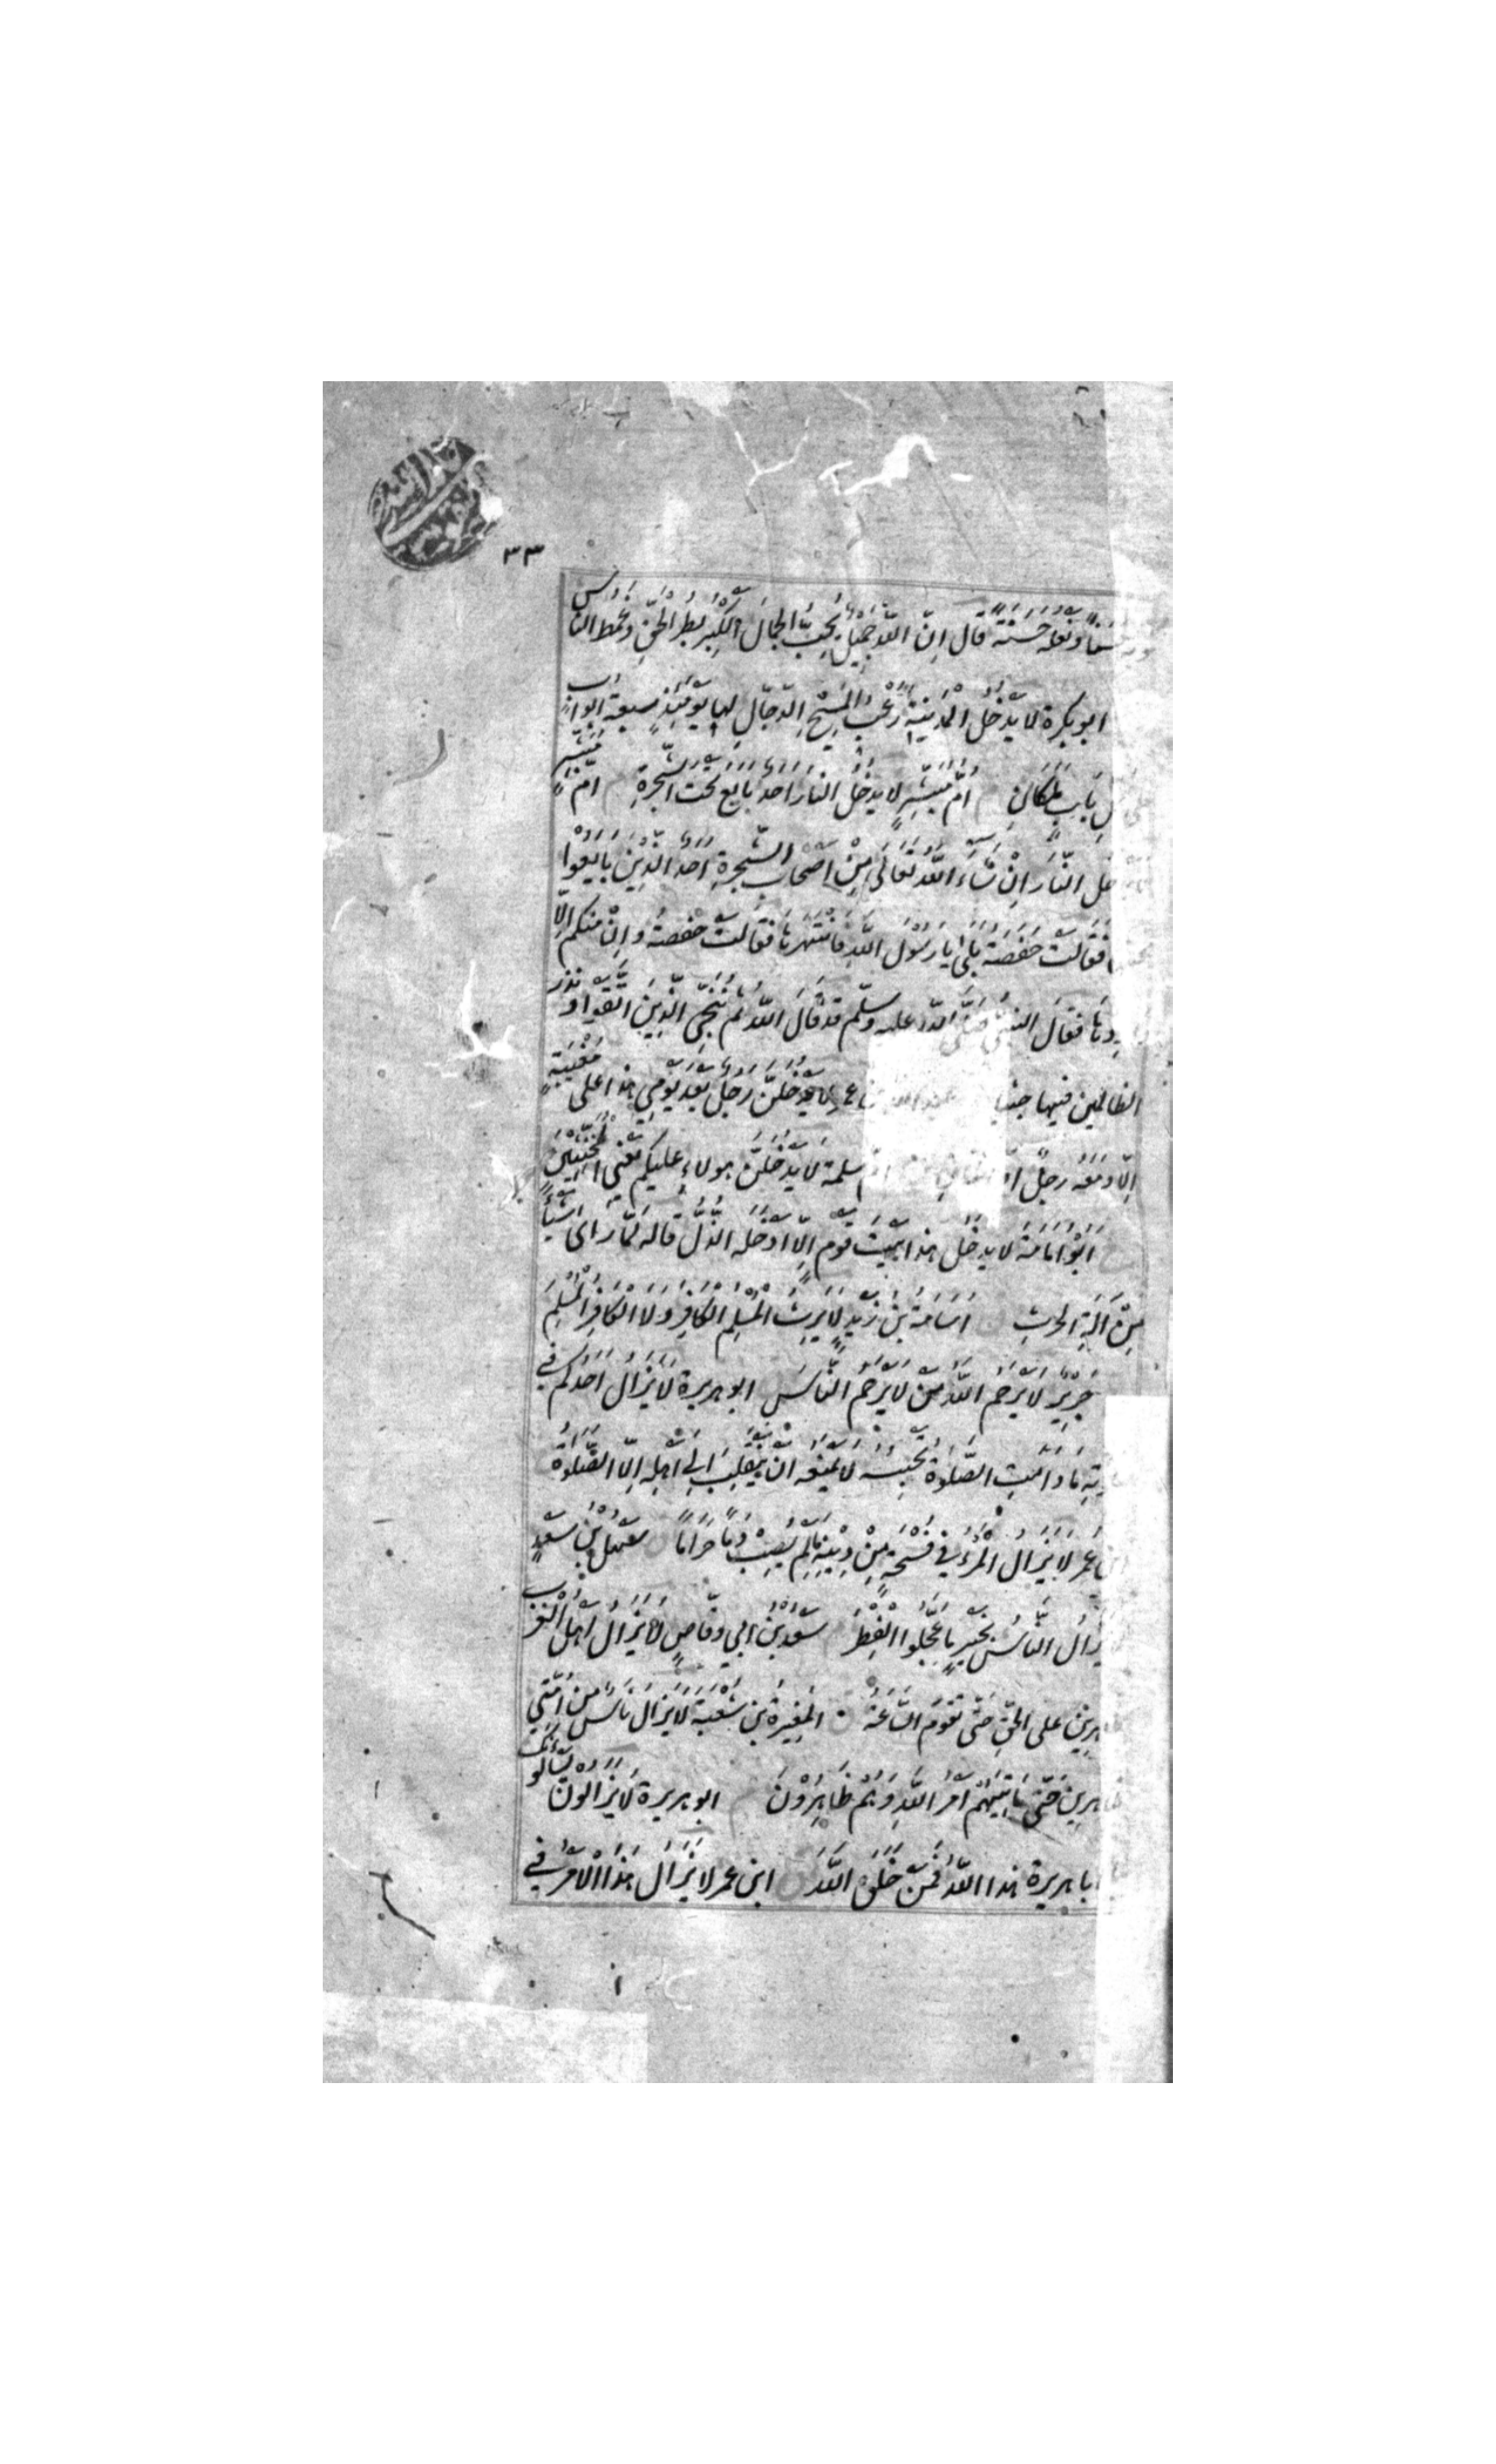 ٣٣
حسنا ونعله حسنة قال ان الله جميل يحب الجمال الكبر بطر الحق وغمط الناس
ابو بكرة لا يدخل المدينة رعب المسيح الدجال لها يومئذ سبعة ابواب
باب ملكان ام مبشر لا يدخل النار احد بايع تحت الشجرة ام مبشر
النار ان شاء الله تعالى من اصحاب الشجرة احد الذين بايعوا
فقالت حفصة بلى يا رسول الله فانتهرها فقالت حفصة وان منكم الا
فقال النبي صلى الله عليه وسلم قد قال الله ثم ننجي الذين اتقوا ونذر
الظالمين فيها جثيا لا يدخلن رجل بعد يومي هذا على مغيبة
الا ومعه رجل سلمة لا يدخلن هولاء عليكم يعني المخنثين
ابو امامة لا يدخل هذا بيت قوم الا ادخله الذل قاله لما راى شيئا
من آلة الحرث اسامة بن زيد لا يرث المسلم الكافر ولا الكافر المسلم
جرير لا يرحم الله من لا يرحم الناس ابو هريرة لا يزال احدكم في
ما دامت الصلوة تحبسه لا يمنعه ان ينقلب الى اهله الا الصلوة
عمر لا يزال المرء في فسحة من دينه ما لم يصب دما حراما سهل بن سعد
يزال الناس بخير ما عجلوا الفطر سعد بن ابي وقاص لا يزال اهل الغرب
على الحق حتى تقوم الساعة المغيرة بن شعبة لا يزال ناس من امتي
حتى ياتيهم امر الله وهم ظاهرون ابو هريرة لا يزالون يسالونك
ابا هريرة هذا الله فمن خلق الله ابن عمر لا يزال هذا الامر في